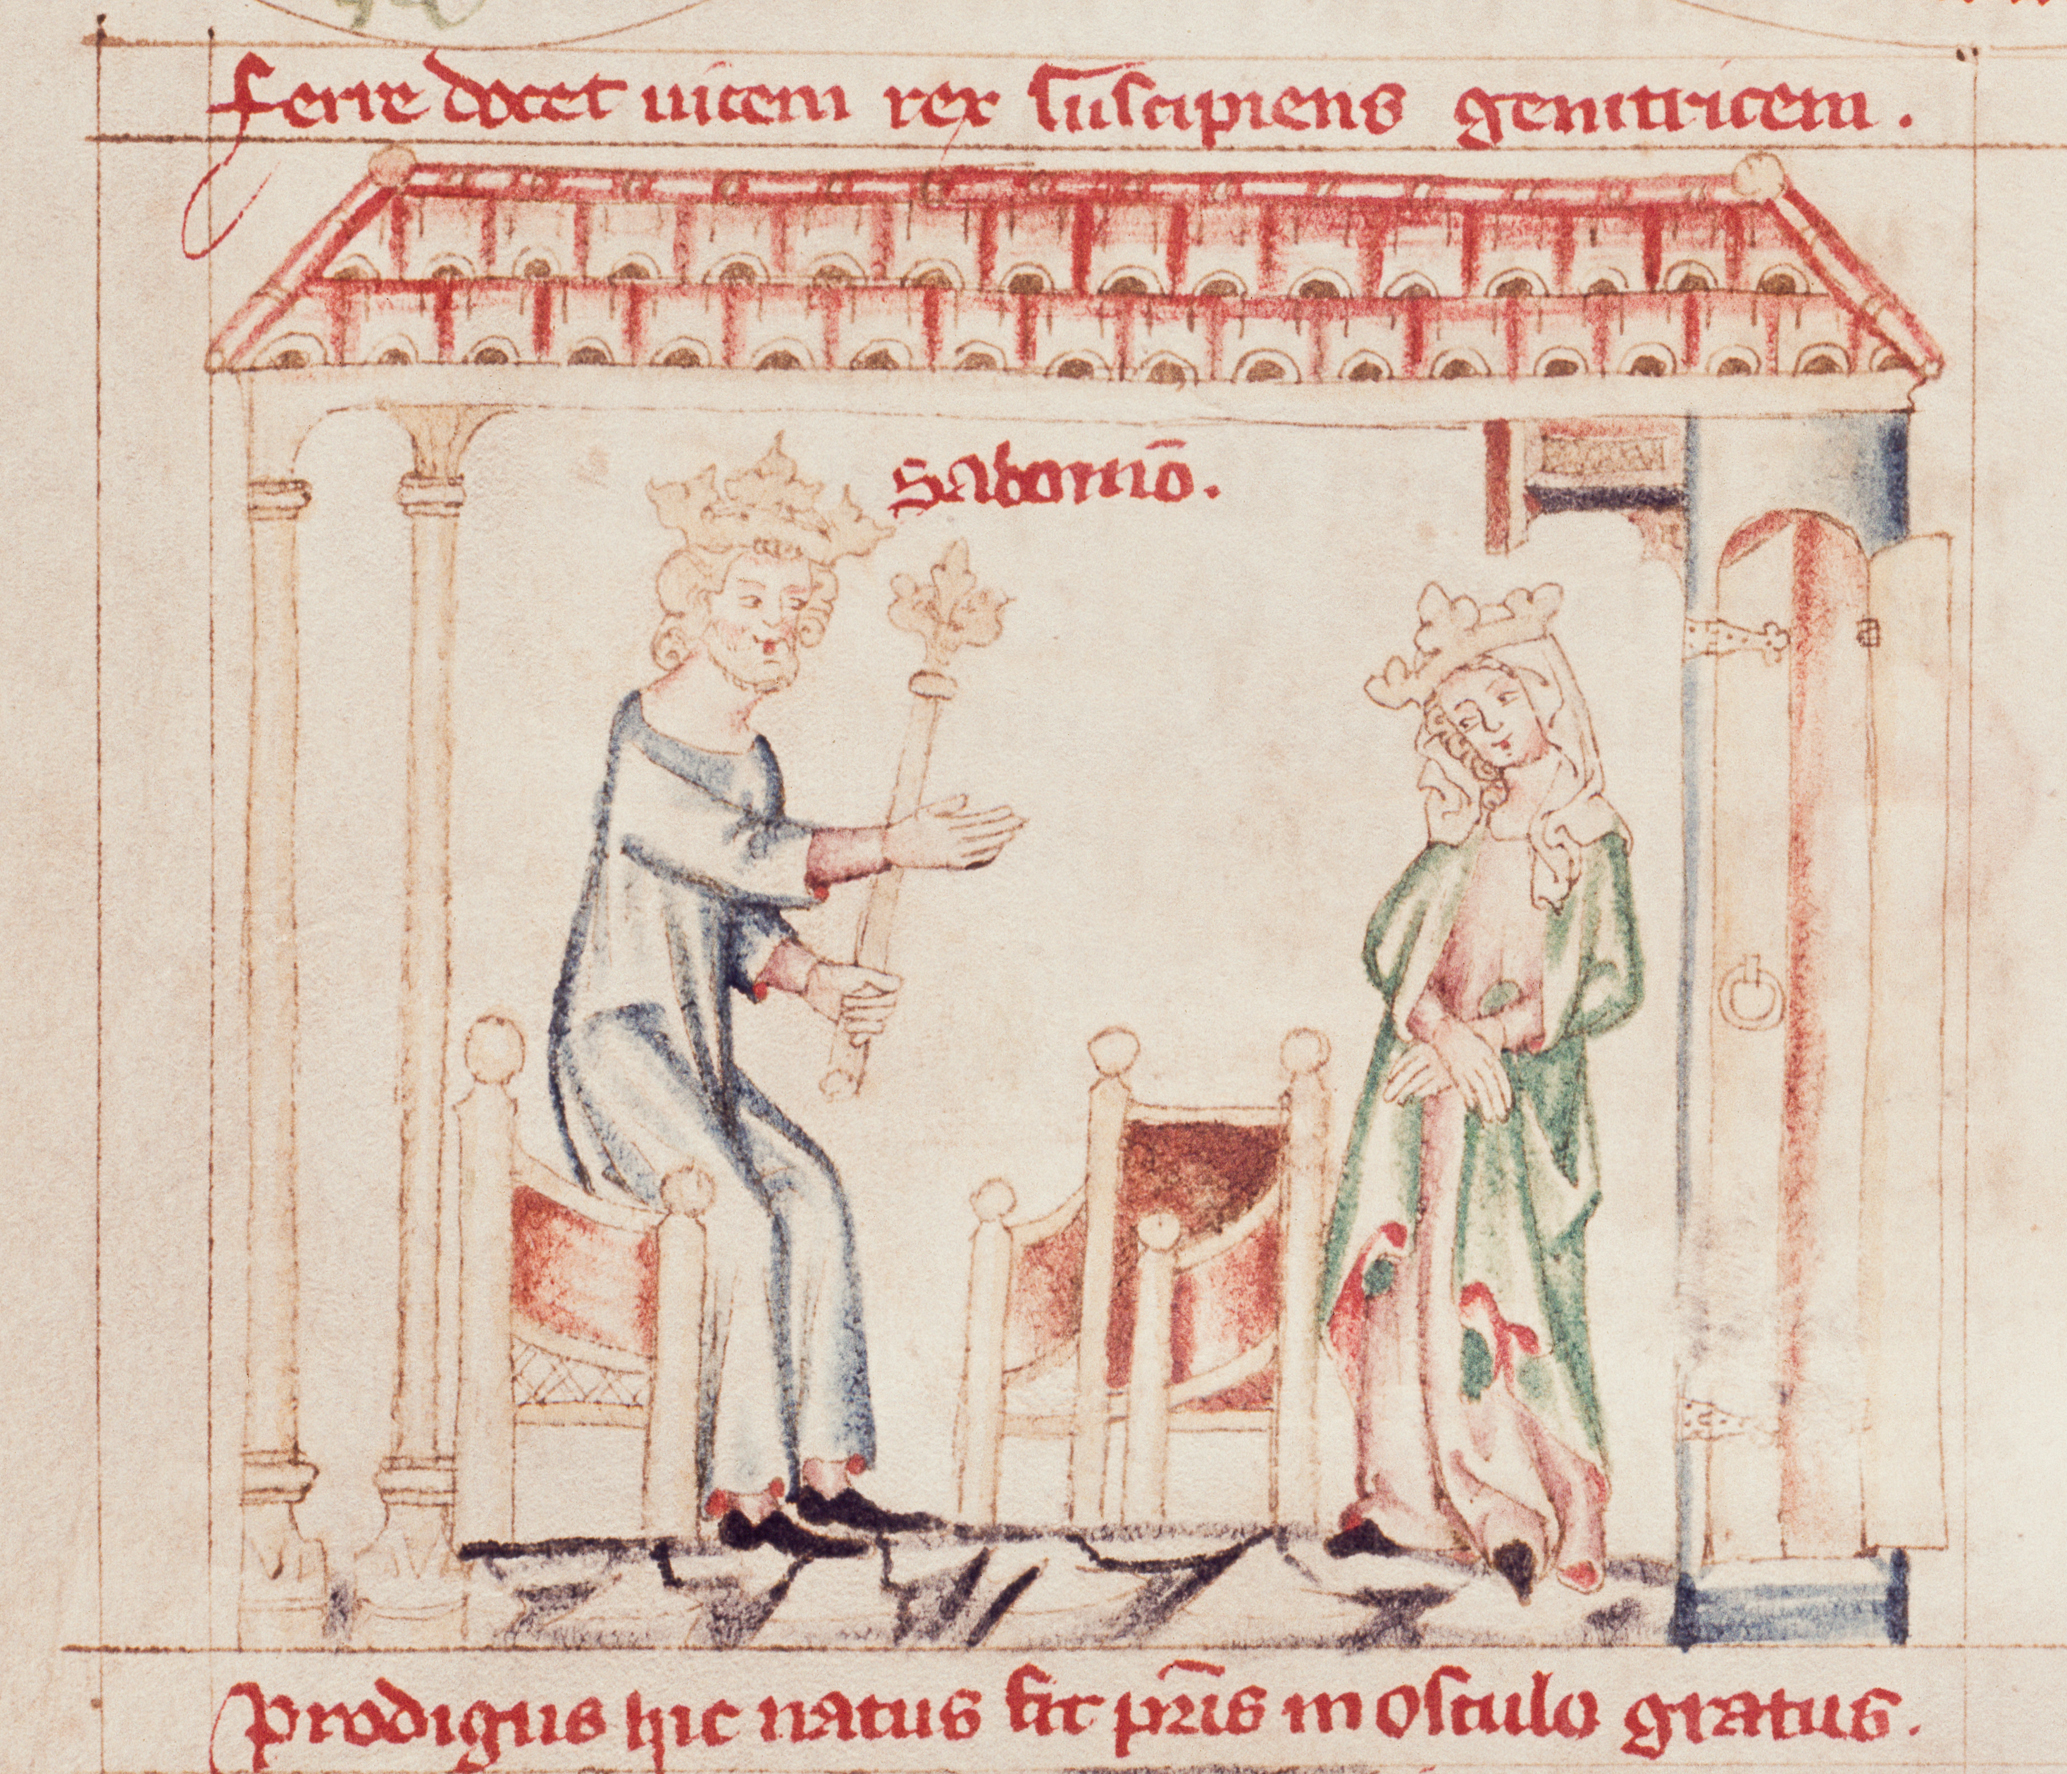 ferre docet uicem rex suscipiens genitricem.
Salomō.
prodigus hic natus fit pr̄is in osculo gratus.